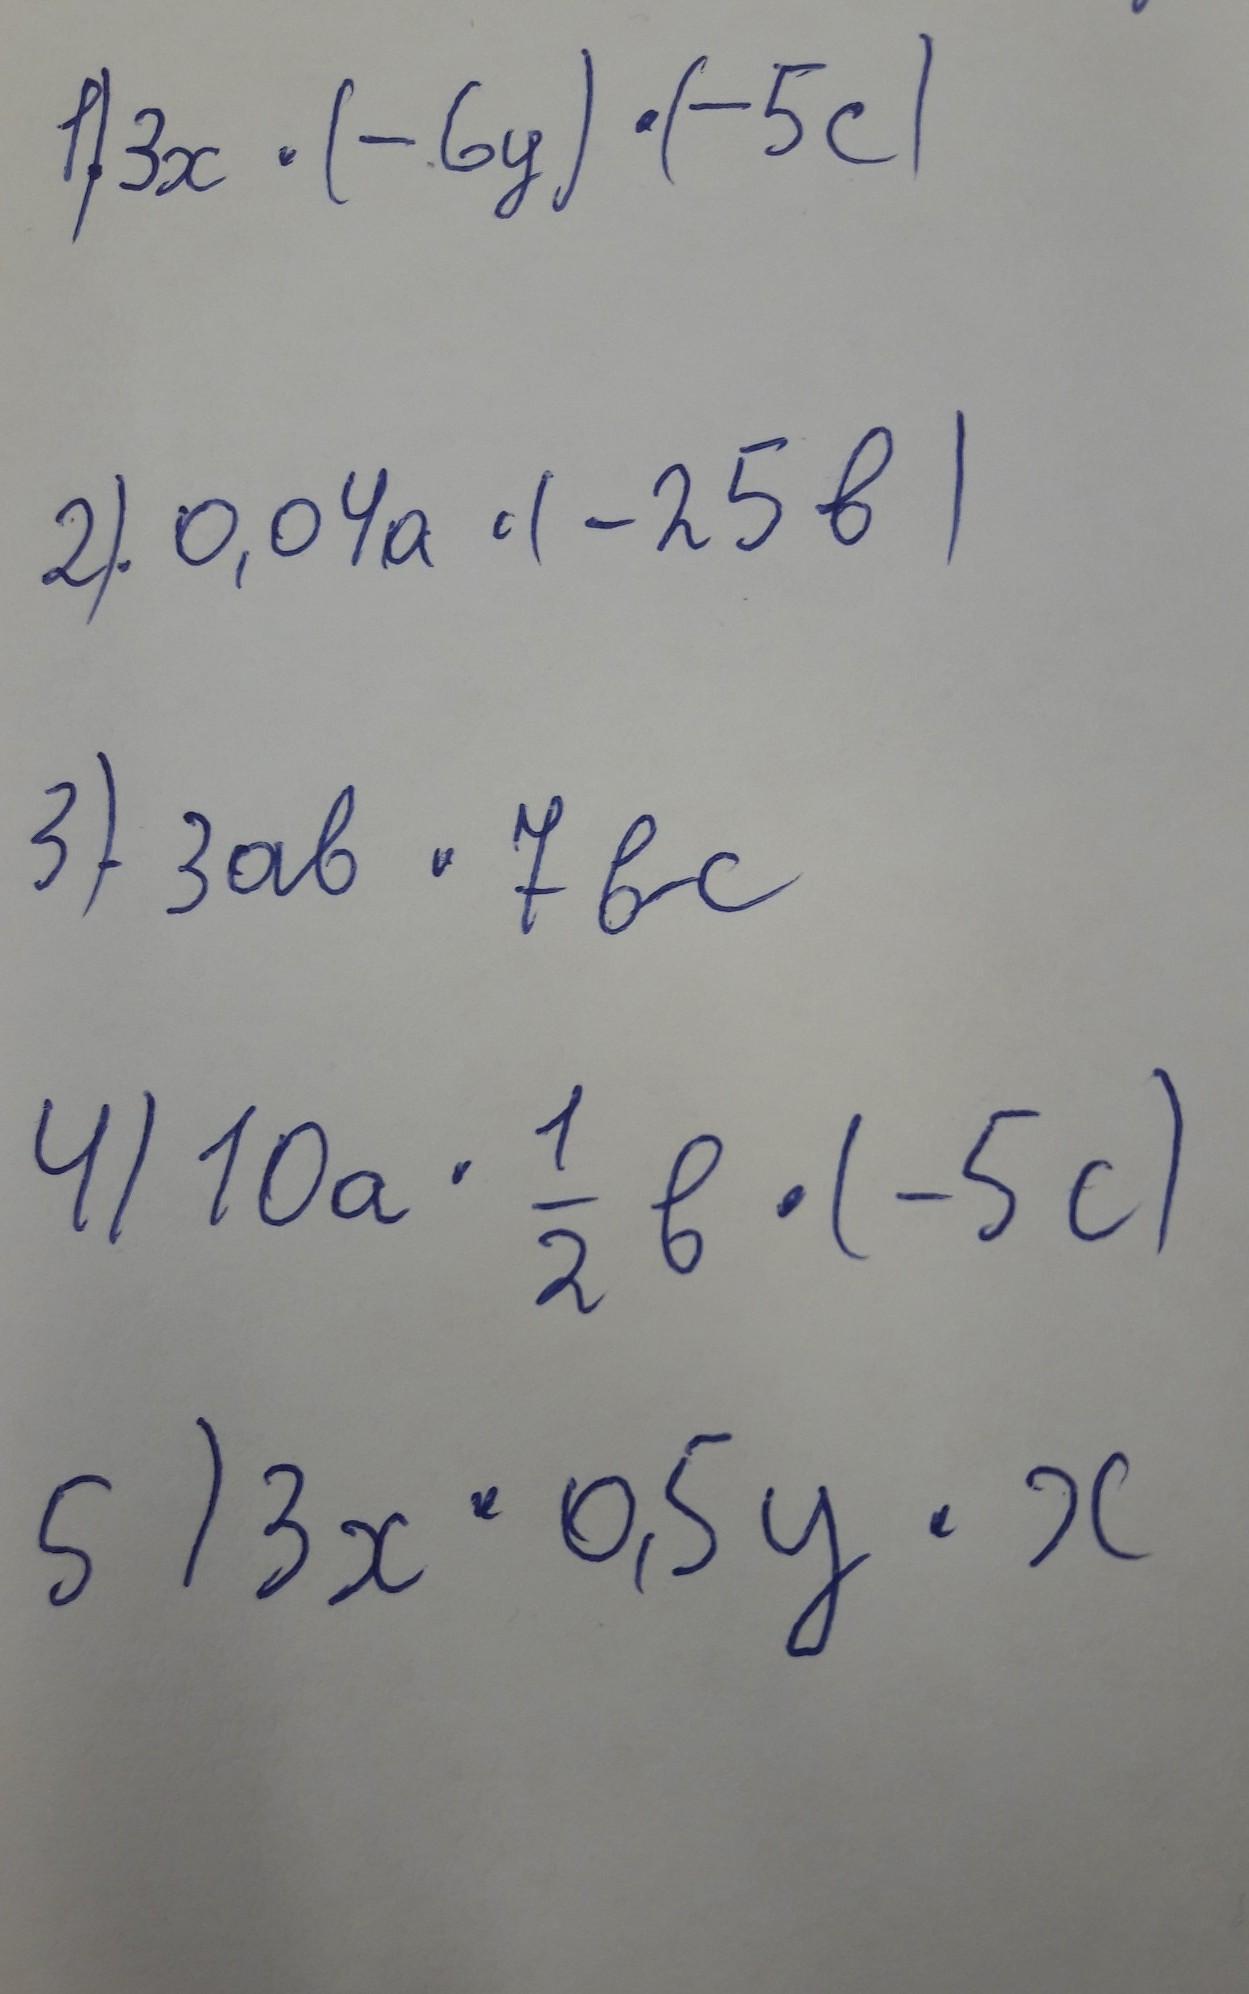 1). 3x · (-6y) · (-5c)
2). 0,04a · (-25b)
3). 3ab · 7bc
4) 10a · 1/2 b · (-5c)
5) 3x · 0,5y · x